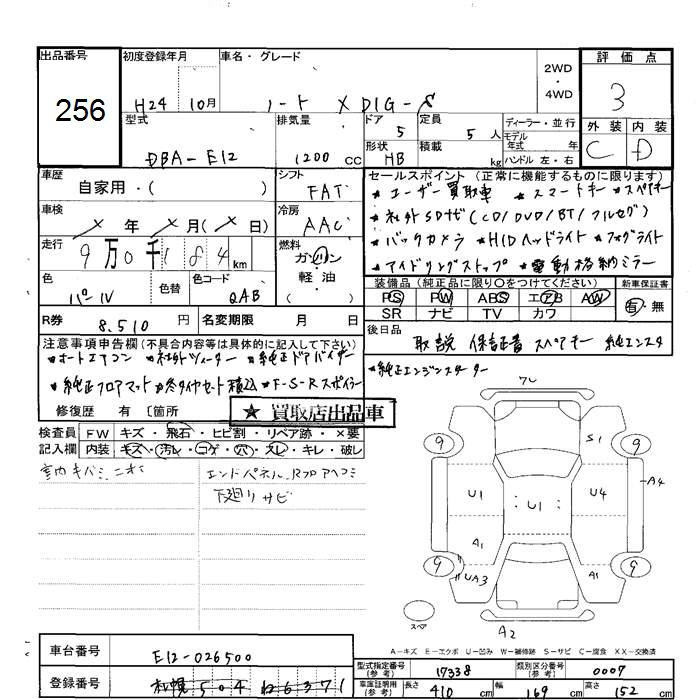 出品番号
256
初度登録年月
H24 10月
車名・グレード
ノート X DIG-S
2WD
・
4WD
評価点
3
外装 内装
C D
型式
DBA-E12
排気量
1200 cc
ドア
5
定員
5 人
ディーラー・並行
モデル
年式 年
形状
HB
積載
kg
ハンドル 左・右
車歴
自家用・( )
シフト
FAT
セールスポイント (正常に機能するものに限ります)
★ユーザー買取車 ★スマートキー ★スペアキー
★社外SDナビ(CD/DVD/BT/フルセグ)
★バックカメラ ★HIDヘッドライト ★フォグライト
★アイドリングストップ ★電動格納ミラー
車検
× 年 × 月(× 日)
冷房
AAC
走行
9万0千184km
燃料
ガソリン
軽・油
( )
色
パールV
色替
色コード
QAB
装備品(純正品に限り○をつけてください)
PS PW ABS エアB AW
SR ナビ TV カワ
新車保証書
有・無
R券
8,510 円
名変期限 月 日
後日品
取説 保証書 スペアキー 純正エンスタ
注意事項申告欄(不具合内容等は具体的に記入して下さい)
★オートエアコン ★社外ツィーター ★純正ドアバイザー
★純正フロアマット ★冬タイヤセット積込 ★F-S-Rスポイラー
★純正エンジンスターター
修復歴 有 〔箇所
★ 買取店出品車
検査員
記入欄
FW キズ・飛石・ヒビ割・リペア跡・×要
内装 キズ・汚レ・コゲ・穴・スレ・キレ・破レ
室内キバミ、ニオイ
エンドパネル、Rフロアヘコミ
下廻りサビ
9
9
9
9
S1
A4
U1
U1
U4
A1
UA3
A1
A2
スペア
A-キズ E-エクボ U-凹み W-補修跡 S-サビ C-腐食 XX-交換済
車台番号
E12-026500
登録番号
型式指定番号
(参考)
17338
類別区分番号
(参考)
0007
車庫証明用
(参考)
長さ 410 cm
幅 169 cm
高さ 152 cm